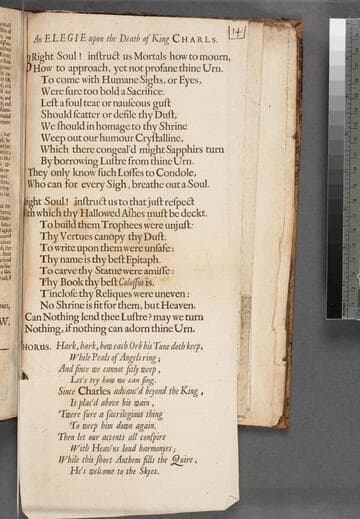 [14]
An ELEGIE upon the Death of King CHARLS.
Right Soul! instruct us Mortals how to mourn,
How to approach, yet not profane thine Urn.
To come with Humane Sighs, or Eyes,
Were sure too bold a Sacrifice.
Lest a foul tear or nauseous gust
Should scatter or defile thy Dust,
We should in homage to thy Shrine
Weep out our humour Crystalline,
Which there congeal'd might Sapphirs turn
By borrowing Lustre from thine Urn.
They only know such Losses to Condole,
Who can for every Sigh, breathe out a Soul.
ight Soul! instruct us to that just respect
ith which thy Hallowed Ashes must be deckt.
To build them Trophees were unjust:
Thy Vertues canopy thy Dust.
To write upon them were unsafe:
Thy name is thy best Epitaph.
To carve thy Statue were amisse:
Thy Book thy best Colossus is.
T'inclose thy Reliques were uneven:
No Shrine is fit for them, but Heaven.
Can Nothing lend thee Lustre? may we turn
Nothing, if nothing can adorn thine Urn.
HORUS. Hark, hark, how each Orb his Tune doth keep,
While Peals of Angels ring;
And since we cannot fitly weep,
Let's try how we can sing.
Since Charles advanc'd beyond the King,
Is plac'd above his wain,
'Twere sure a sacrilegious thing
To weep him down again.
Then let our accents all conspire
With Heav'ns loud harmonyes;
While this short Anthem fills the Quire,
He's welcome to the Skyes.
W.